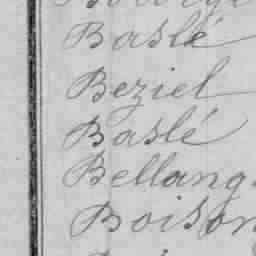 Baslé
Beziel
Baslé
Bellang
Boison